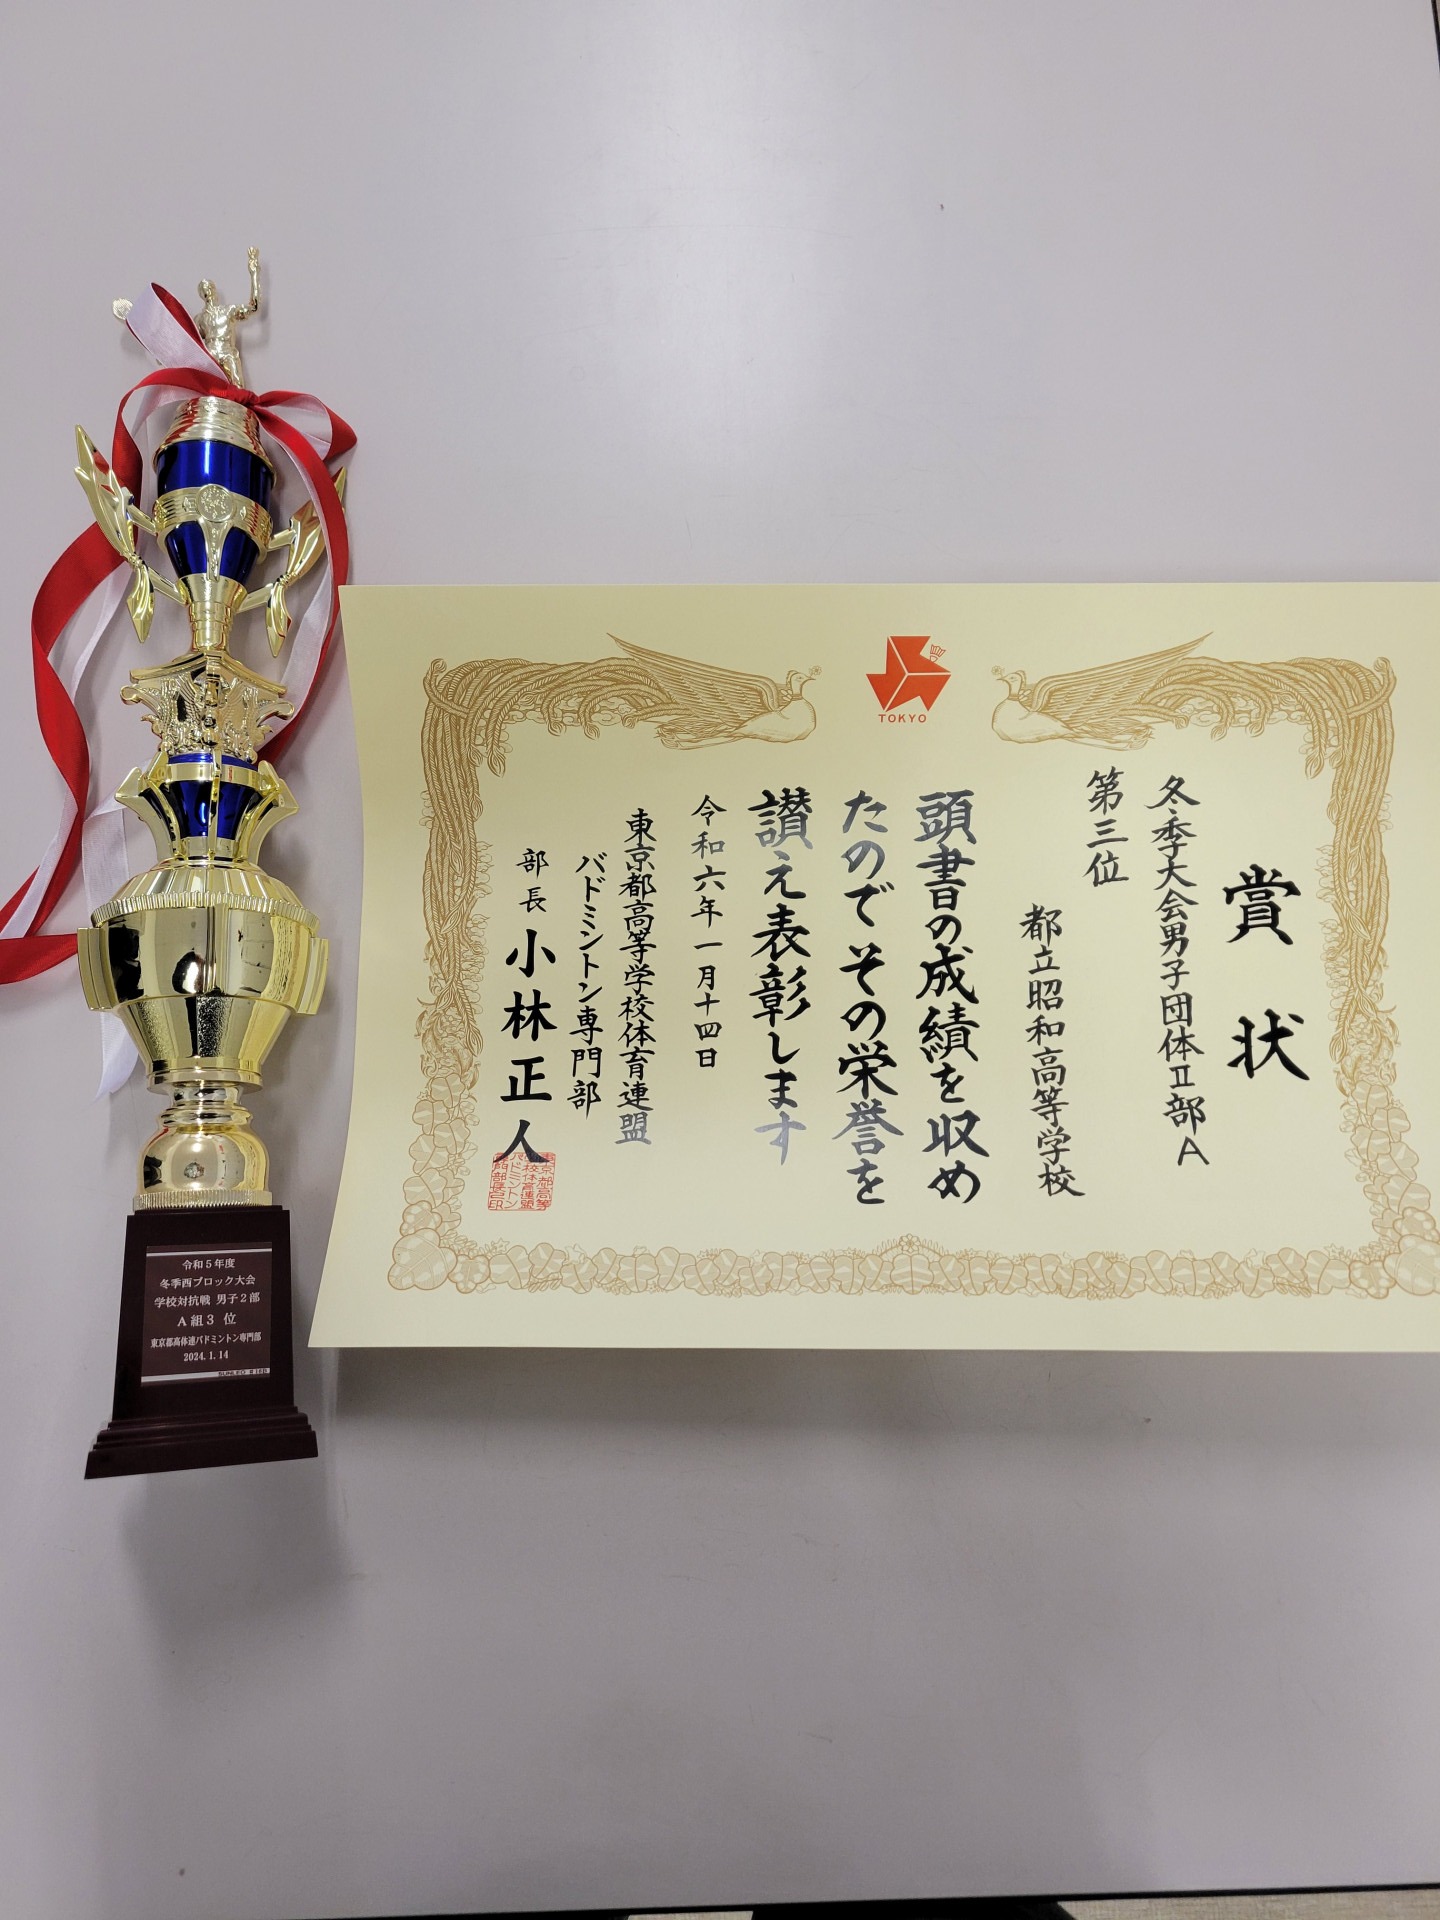 令和5年度
冬季西ブロック大会
学校対抗戦 男子2部
A組3 位
東京都高体連バドミントン専門部
2024.1.14
TOKYO
賞状
冬季大会男子団体Ⅱ部A
第三位
都立昭和高等学校
頭書の成績を収め
たのでその栄誉を
讃え表彰します
令和六年一月十四日
東京都高等学校体育連盟
バドミントン専門部
部長 小林正人